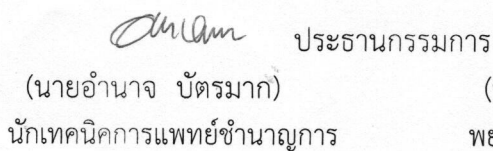 ประธานกรรมการ
(นายอำนาจ บัตรมาก) (
นักเทคนิคการแพทย์ชำนาญการ พย